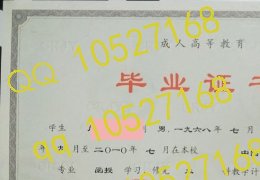 成人高等教育
毕业证书
学生 男，一九六八年七月
年九月至二〇一〇年七月在本校
专业 函授 学习，修完
计教学计
QQ 10527168
QQ 10527168
QQ 10527168